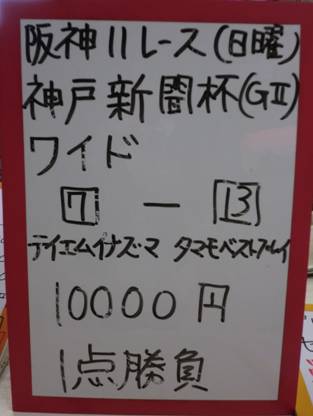 阪神11レース(日曜)
神戸新聞杯(GⅡ)
ワイド
7 — 13
テイエムイナズマ タマモベストプレイ
10000円
1点勝負